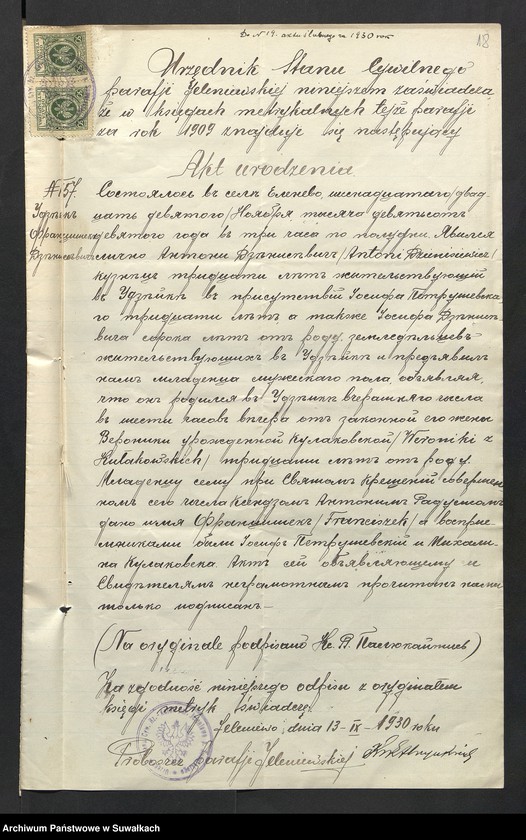 Do N 19. aktu ślubnego za 1930 rok
18
Urzędnik Stanu Cywilnego
parafji Jeleniewskiej niniejszem zaświadcza
że w księgach metrykalnych tejże parafji
za rok 1909 znajduje się następujący
Akt urodzenia
№ 157.
Удзѣкъ
Францишекъ
Состоялось въ селѣ Еленево, шестнадцатаго/двад-
цать девятого/Ноября тысяча девятьсотъ
девятого года въ три часа по полудни. Явился
лично Антони /Antoni Dzienisiewicz/
кузнецъ тридцати лѣтъ жительствующій
въ Удзѣйкѣ въ присутствіи Іосифа Петрушевска-
го тридцати лѣтъ, а также Іосифа
вича сорока лѣтъ отъ роду, земледѣльцевъ
жительствующихъ въ Удзѣйкѣ и предъявилъ
намъ младенца мужескаго пола, объявляя,
что онъ родился въ Удзѣйкѣ вчерашняго числа
въ шесть часовъ вечера отъ законной его жены
Вероники урожденной Кулаковской /Weroniki z
Kułakowskich/ тридцати лѣтъ отъ роду.
Младенцу сему при Святомъ Крещеніи совершен-
номъ сего числа Ксендзомъ Антонимъ
дано имя Францишекъ /Franciszek/ а воспріе-
мниками были Іосифъ Петрушевскій и Михали-
на Кулаковска. Актъ сей объявляющему и
Свидѣтелямъ неграмотнымъ прочитанъ нами
только подписанъ.—
(Na oryginale podpisano Кс. В. )
Za zgodność niniejszego odpisu z oryginałem
księgi metryk świadczę.
Jeleniewo, dnia 13-IX-1930 roku
Proboszcz parafji Jeleniewskiej
Archiwum Państwowe w Suwałkach